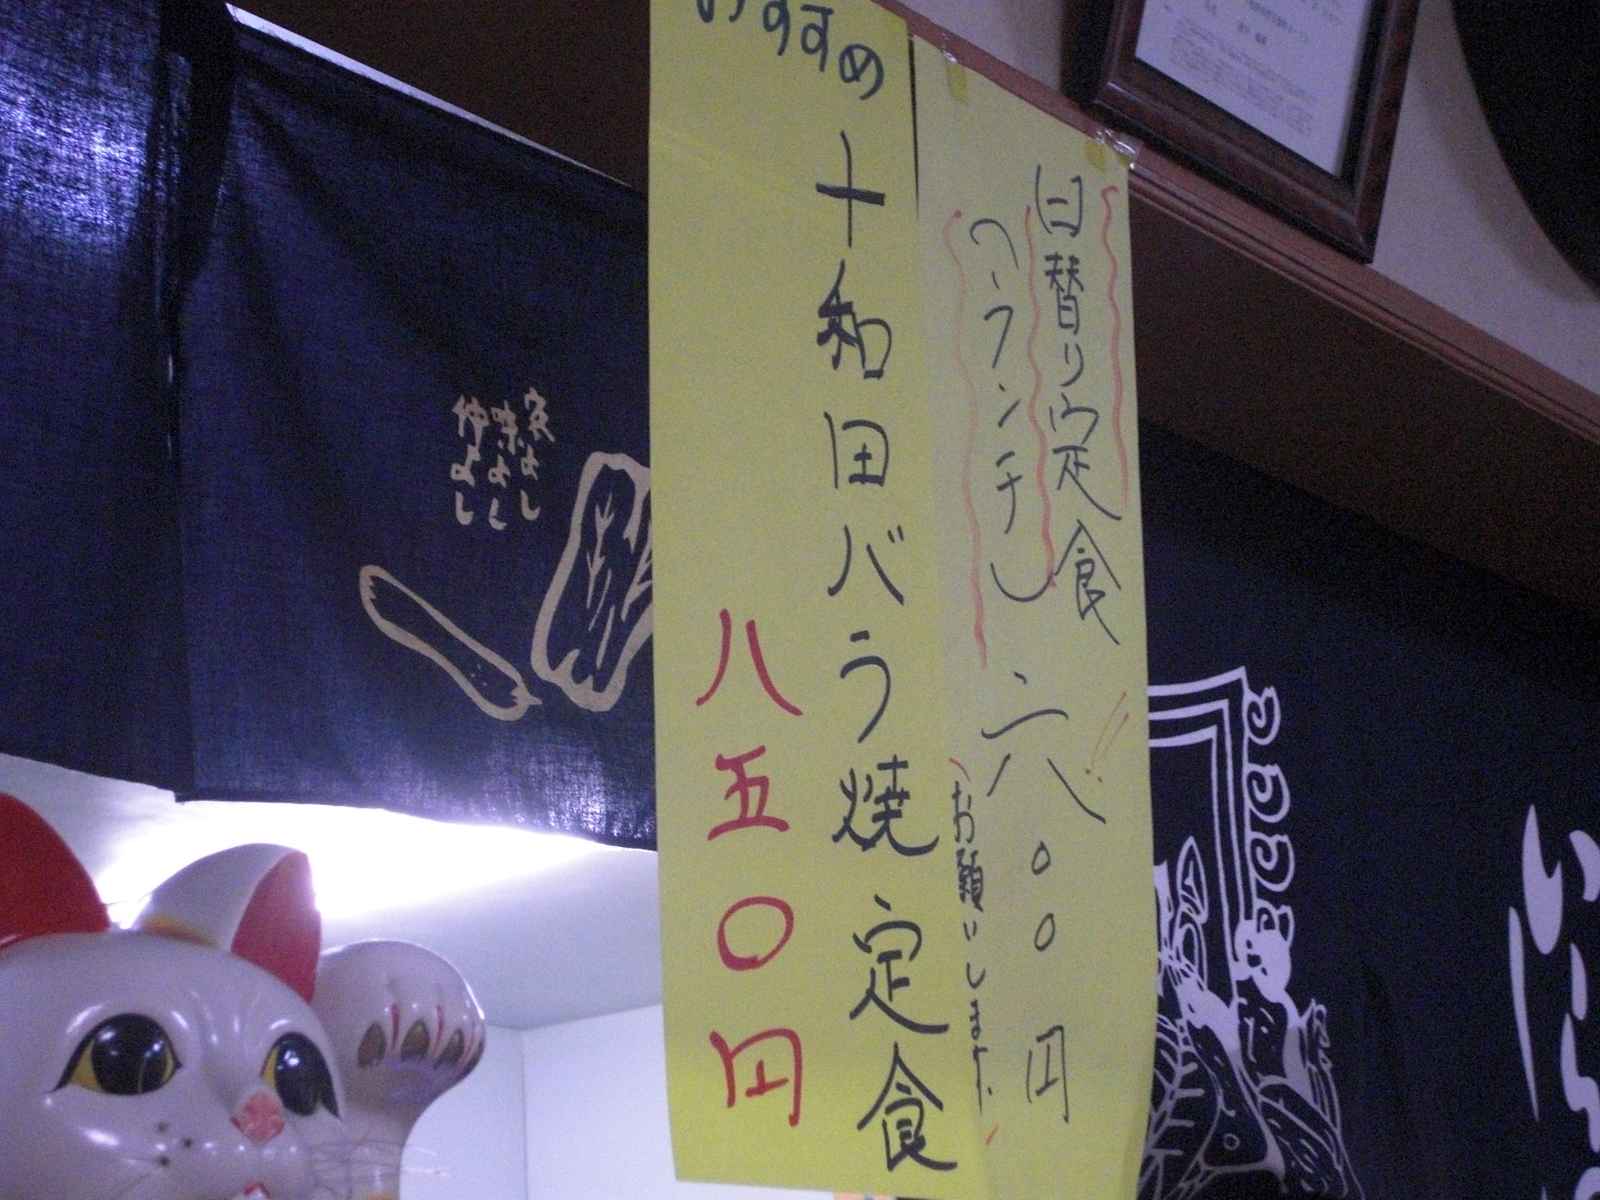 日替り定食
(ランチ)
六〇〇円
お願いします
おすすめ
十和田バラ焼定食
八五〇円
家よし
味よし
仲よし